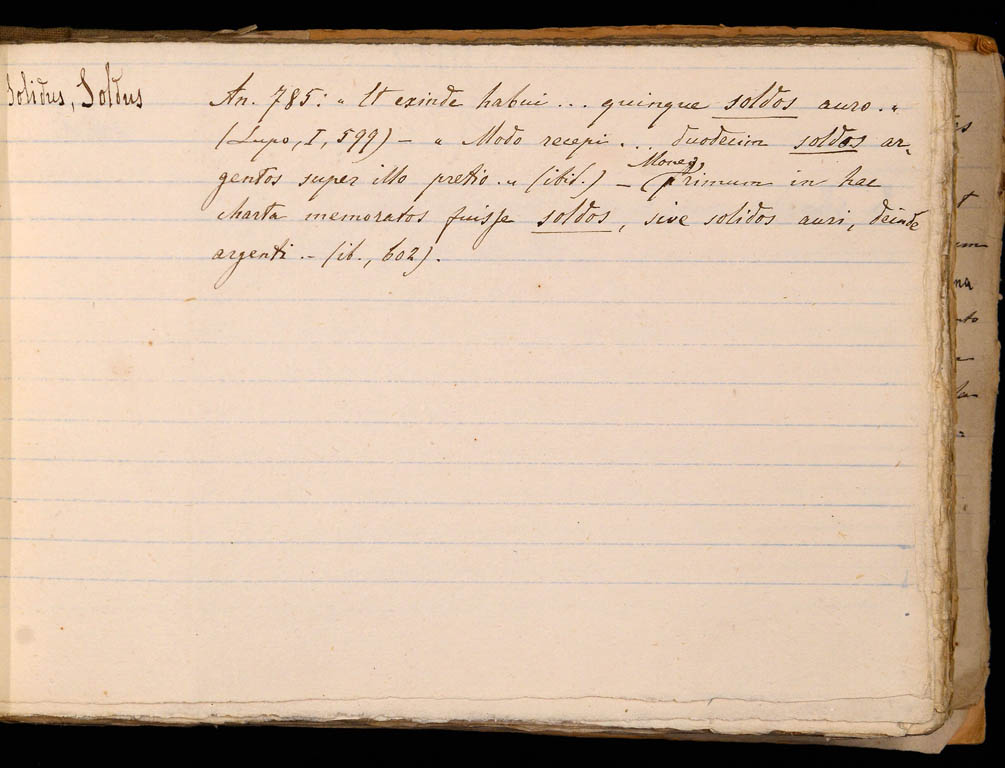 Solidus, Soldus
An. 785: " Et exinde habui ... quinque soldos auro. "
(Lupo, I, 599) — " Modo recepi ... duodecim soldos ar-
gentos super illo pretio. " (ibid.) — Primum in hac
charta memoratos fuisse soldos, sive solidos auri, deinde
argenti. — (ib., 602).